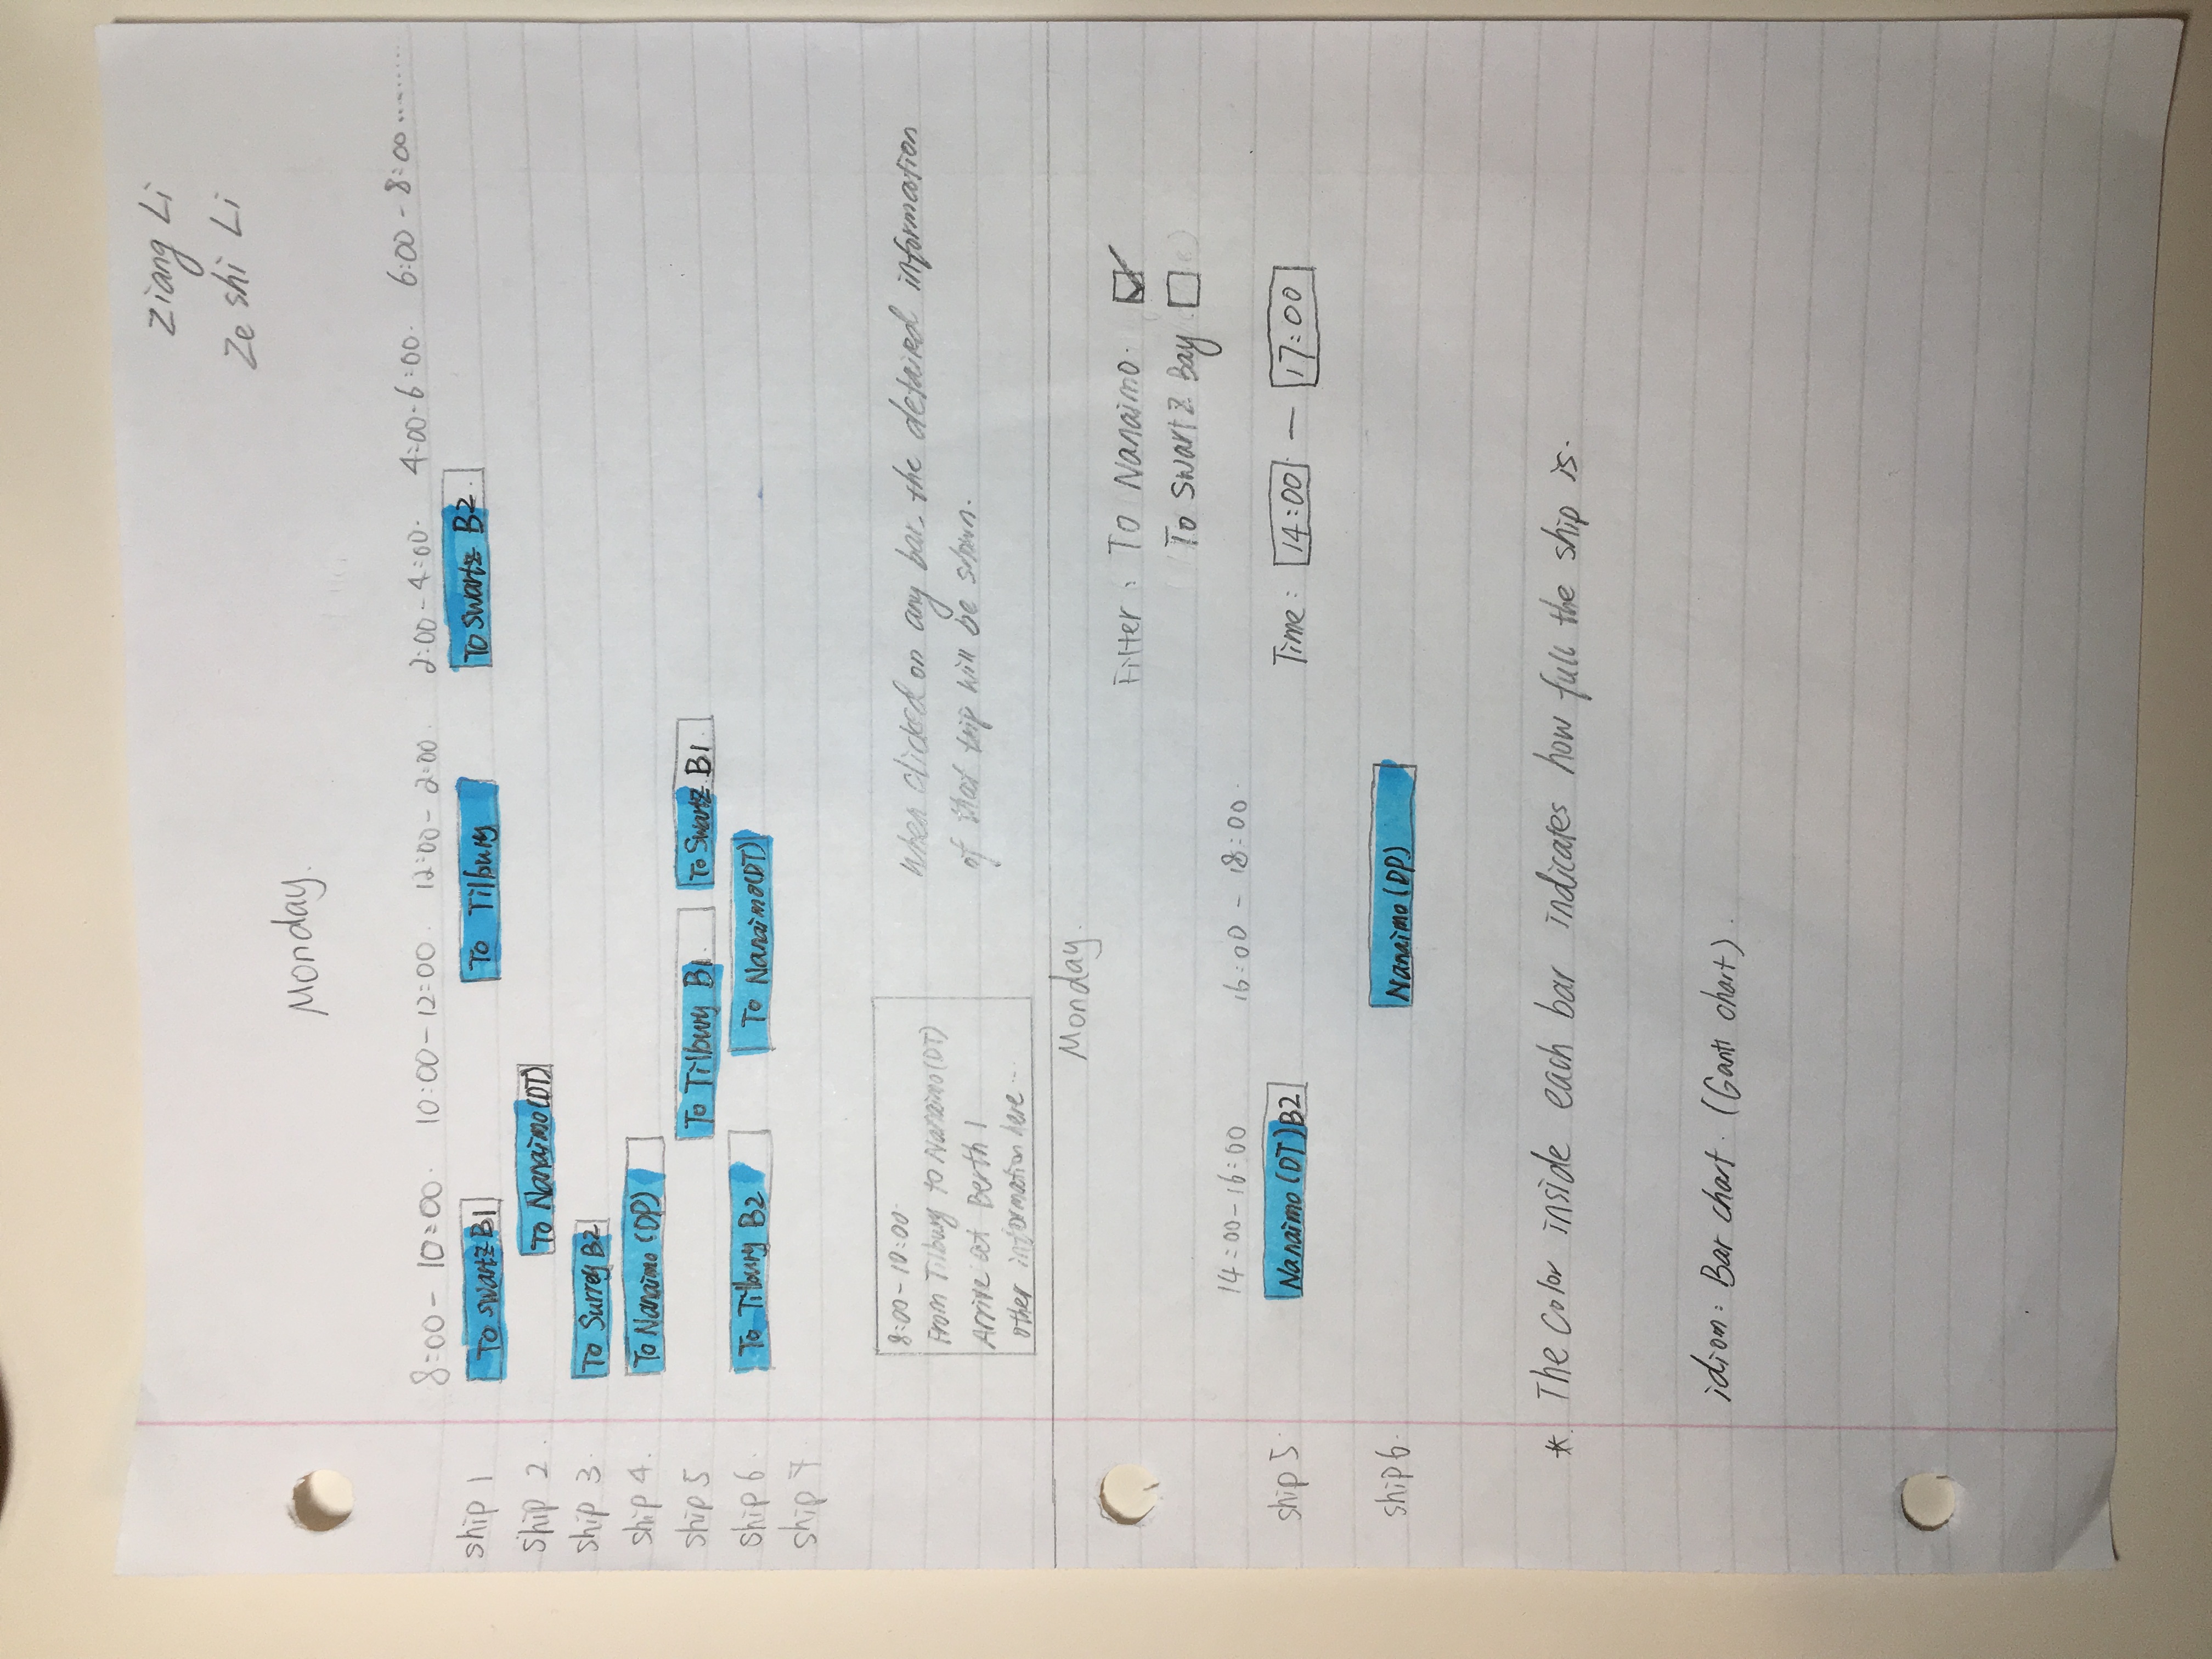 Ziang Li
Ze shi Li
Monday.
8:00 - 10:00. 10:00 - 12:00. 12:00 - 2:00. 2:00 - 4:00. 4:00 - 6:00. 6:00 - 8:00 ..........
ship 1 To Swartz B1 To Tilbury To Swartz B2.
ship 2. To Nanaimo (DT)
ship 3. To Surrey B2
ship 4. To Nanaimo (DP)
ship 5 To Tilbury B1. To Swartz B1.
ship 6. To Tilbury B2 To Nanaimo (DT)
ship 7
8:00 - 10:00.
From Tilbury to Nanaimo (DT)
Arrive at Berth 1
other information here ...
When clicked on any bar, the detailed information
of that trip will be shown.
Monday.
Filter: To Nanaimo.
To Swartz Bay
14:00 - 16:00 16:00 - 18:00.
ship 5. Nanaimo (DT) B2 Time: 14:00 — 17:00
ship 6. Nanaimo (DP)
* The color inside each bar indicates how full the ship is.
idiom: Bar chart. (Gantt chart).